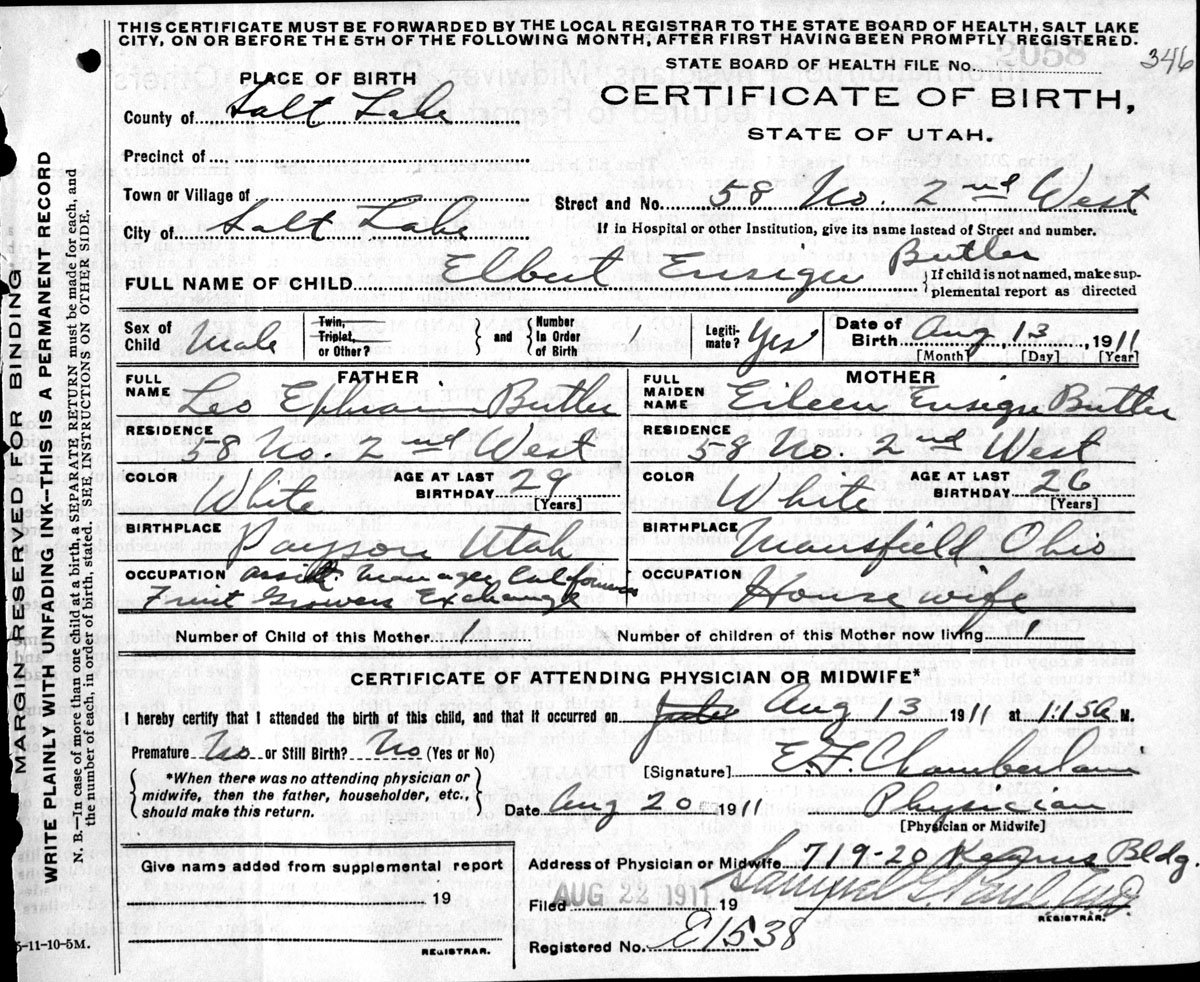 THIS CERTIFICATE MUST BE FORWARDED BY THE LOCAL REGISTRAR TO THE STATE BOARD OF HEALTH, SALT LAKE
CITY, ON OR BEFORE THE 5TH OF THE FOLLOWING MONTH, AFTER FIRST HAVING BEEN PROMPTLY REGISTERED.
346
STATE BOARD OF HEALTH FILE No.
CERTIFICATE OF BIRTH,
STATE OF UTAH.
PLACE OF BIRTH
County of Salt Lake
Precinct of
Town or Village of
Street and No. 58 No. 2nd West
City of Salt Lake
If in Hospital or other Institution, give its name instead of Street and number.
FULL NAME OF CHILD Elbert Ensign Butler
{If child is not named, make sup-
plemental report as directed
Sex of Child Male
Twin, Triplet, or Other? } and { Number In Order of Birth 1
Legiti-mate? Yes
Date of Birth Aug 13, 1911
[Month] [Day] [Year]
FATHER
FULL NAME Leo Ephraim Butler
RESIDENCE 58 No. 2nd West
COLOR White AGE AT LAST BIRTHDAY 29 [Years]
BIRTHPLACE Payson Utah
OCCUPATION Asst. Manager California
Fruit Growers Exchange
MOTHER
FULL MAIDEN NAME Eileen Ensign Butler
RESIDENCE 58 No. 2nd West
COLOR White AGE AT LAST BIRTHDAY 26 [Years]
BIRTHPLACE Mansfield Ohio
OCCUPATION Housewife
Number of Child of this Mother 1 Number of children of this Mother now living 1
CERTIFICATE OF ATTENDING PHYSICIAN OR MIDWIFE*
I hereby certify that I attended the birth of this child, and that it occurred on Aug 13 1911 at 1:15a M.
Premature No or Still Birth? No (Yes or No)
[Signature] E. F. Chamberlain
{*When there was no attending physician or
midwife, then the father, householder, etc.,
should make this return.}
Date Aug 20 1911 Physician
[Physician or Midwife]
Give name added from supplemental report
19
REGISTRAR.
Address of Physician or Midwife 719-20 Kearns Bldg.
Filed AUG 22 1911 19 Samuel G. Paul M.D.
REGISTRAR.
Registered No. E1538
MARGIN RESERVED FOR BINDING
WRITE PLAINLY WITH UNFADING INK—THIS IS A PERMANENT RECORD
N. B.—In case of more than one child at a birth, a SEPARATE RETURN must be made for each, and
the number of each, in order of birth, stated. SEE INSTRUCTIONS ON OTHER SIDE.
5-11-10-5M.